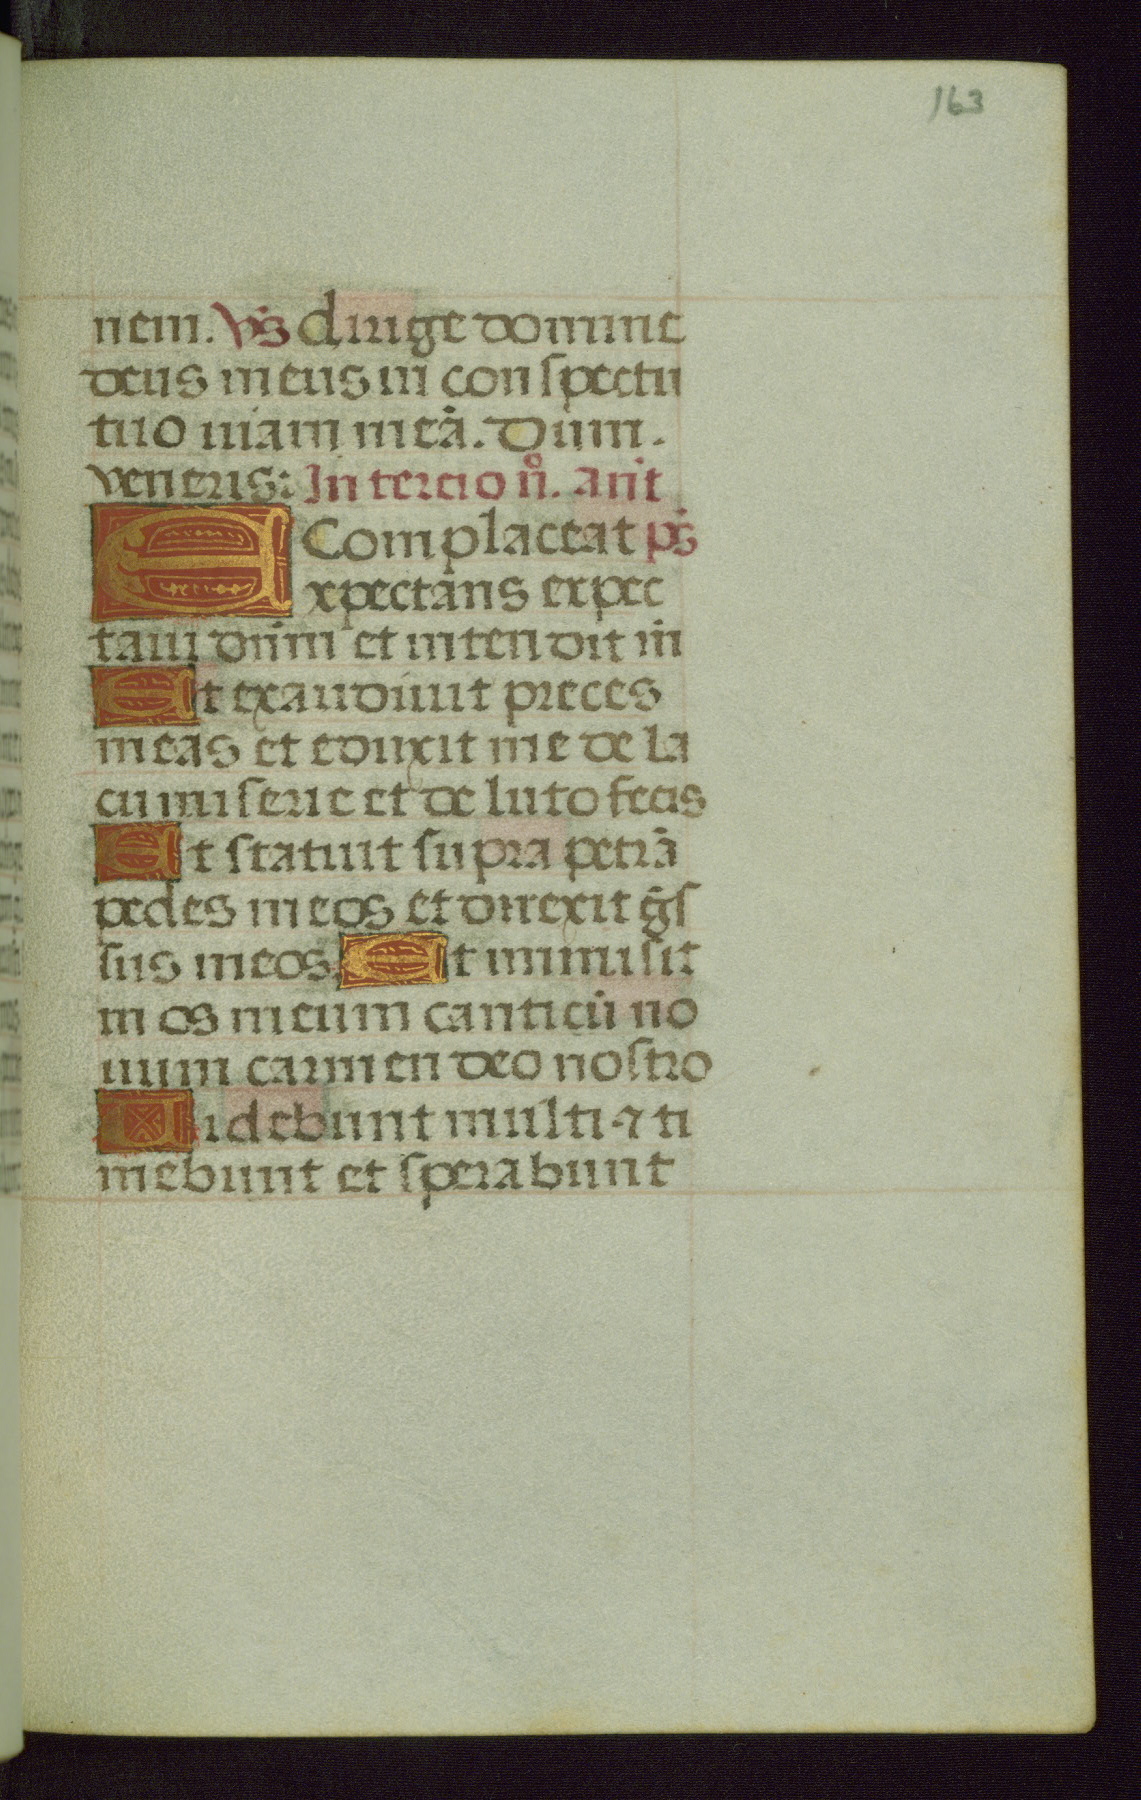 163
nem. vs̃ dirige domine
deus meus in conspectu
tuo uiam meã. Dum.
veneris: In tercio nº. añt
Complaceat ps̃
Expectans expec
taui dñm et intendit m̃
Et exaudiuit preces
meas et eduxit me de la
cu miserie et de luto fecis
Et statuit supra petrã
pedes meos et direxit g̃s
sus meos. Et immisit
in os meum canticũ no
uum carmen deo nostro
Uidebunt multi ⁊ ti
mebunt et sperabunt